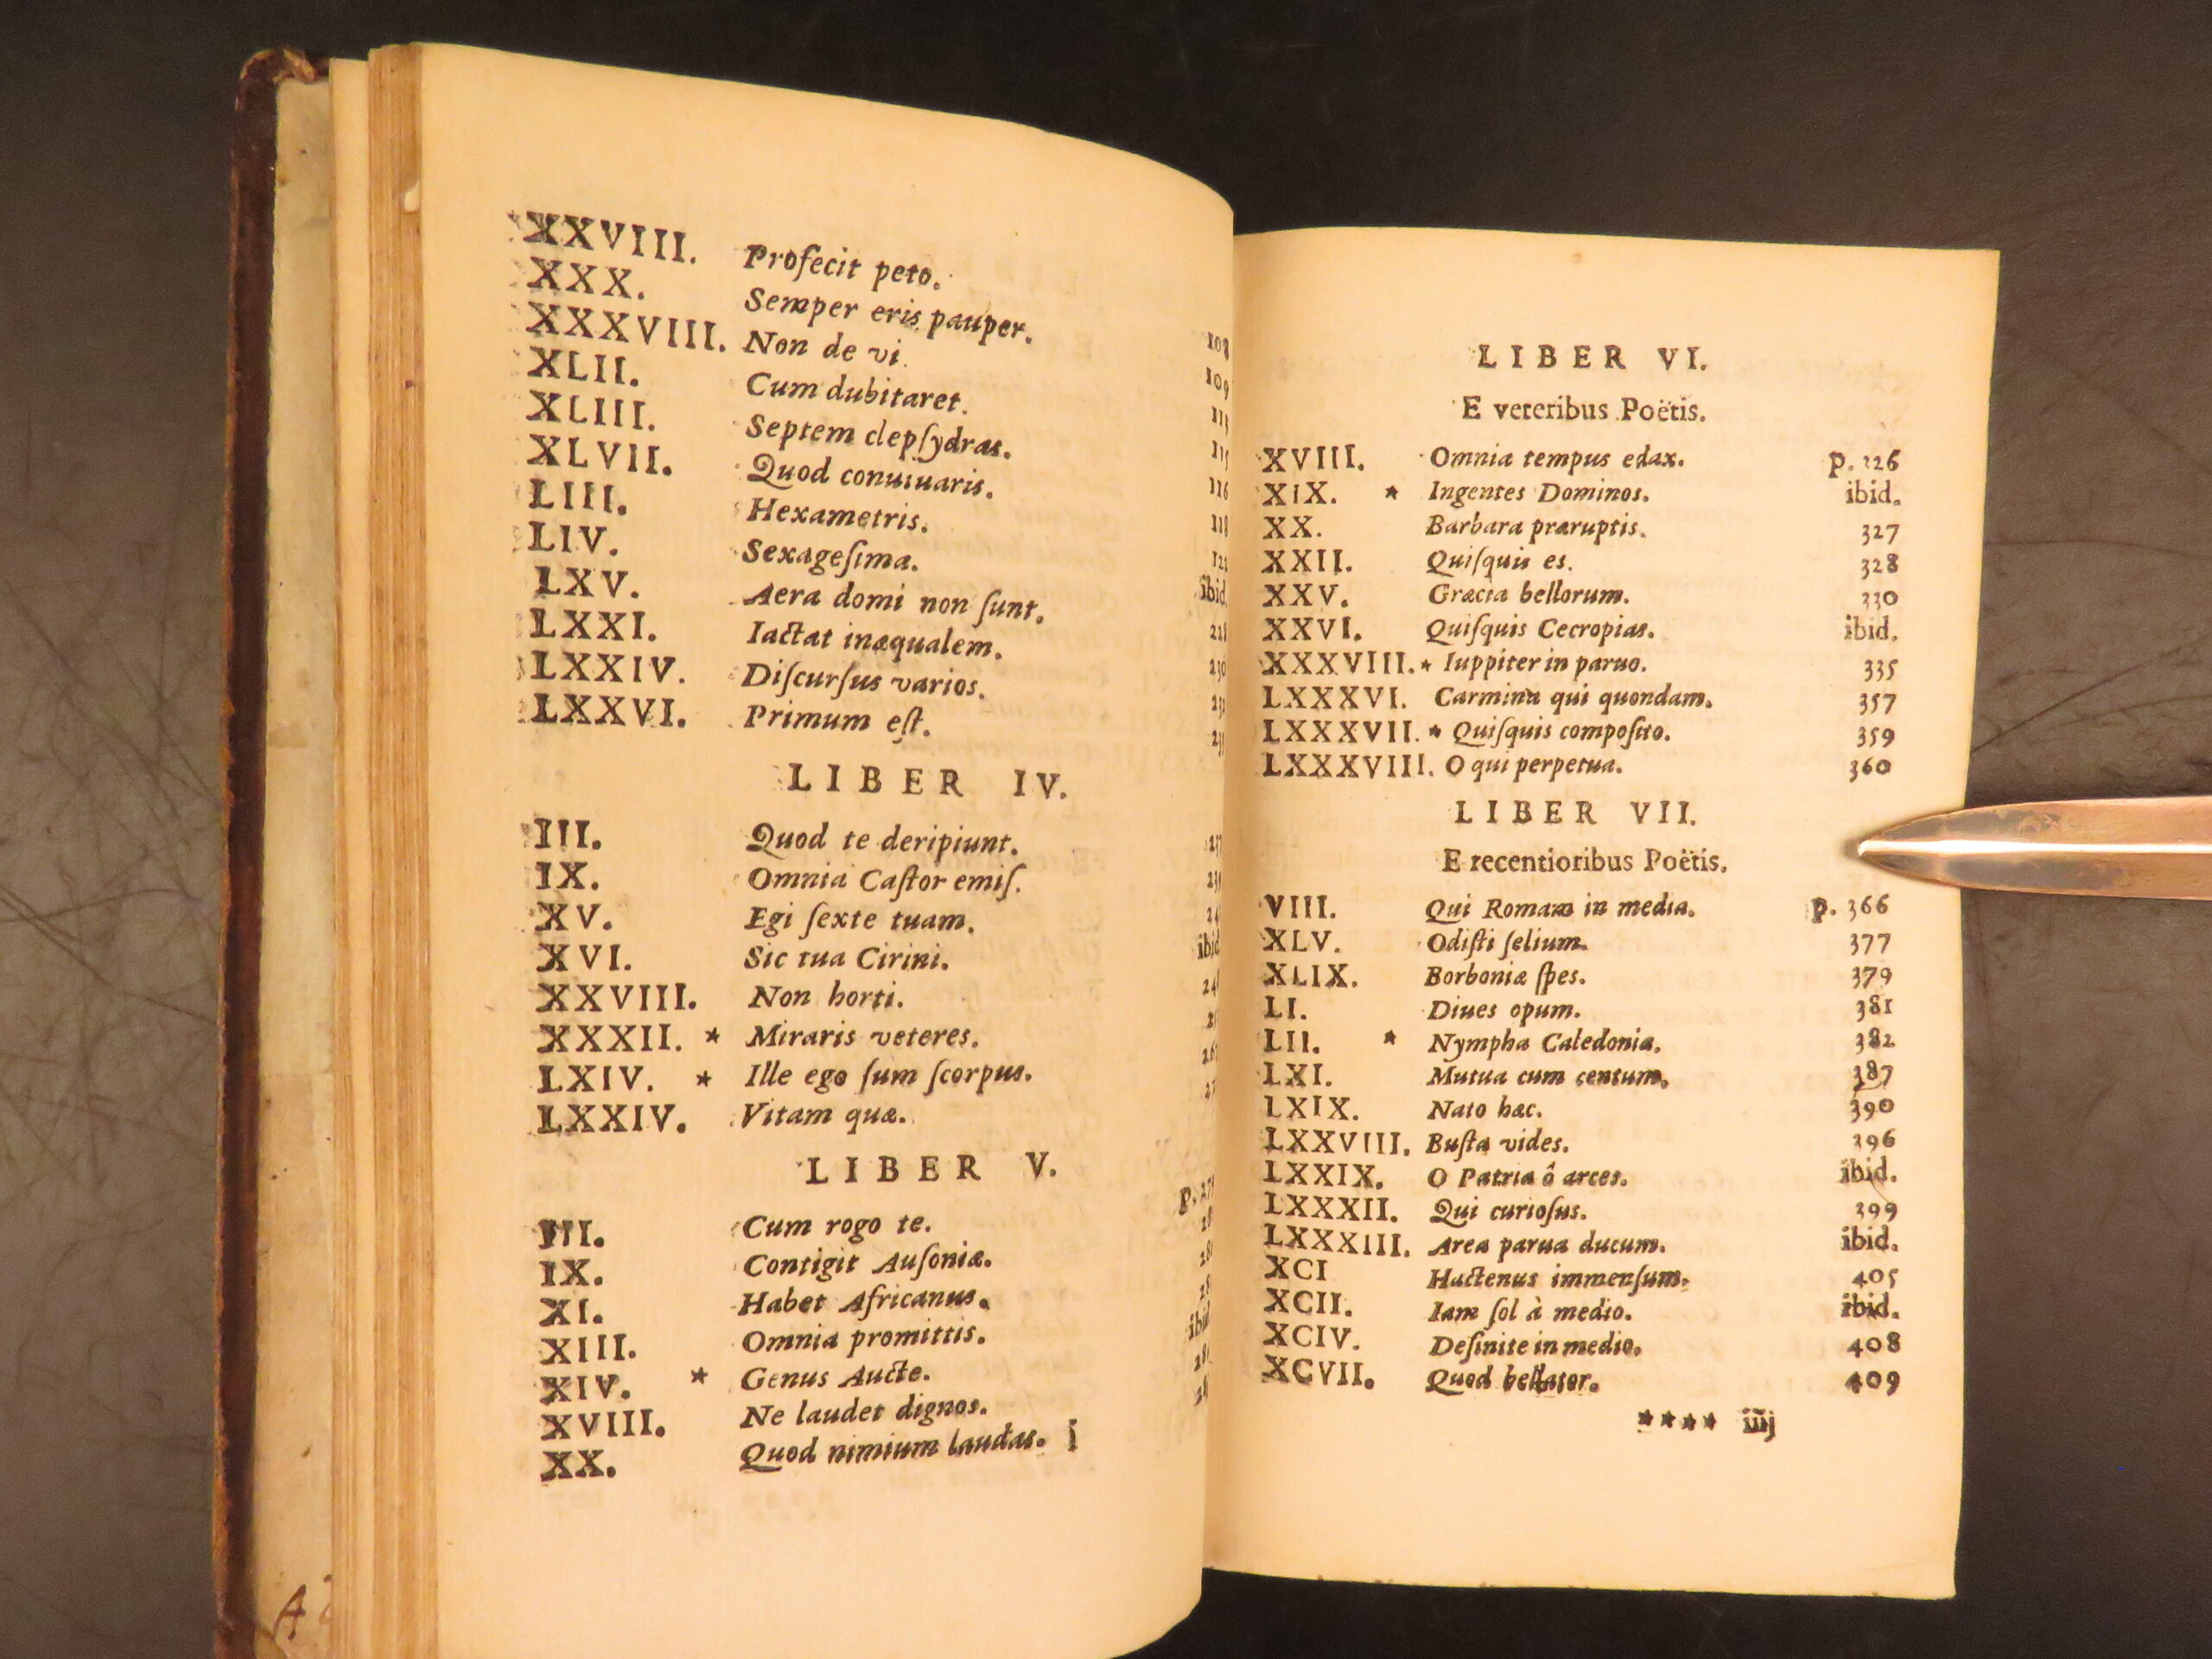 XXVIII. Profecit peto. 108
XXX. Semper eris pauper. 109
XXXVIII. Non de vi. 113
XLII. Cum dubitaret. 115
XLIII. Septem clepſydras. 116
XLVII. Quod conuiuaris. 118
LIII. Hexametris.
LIV. Sexageſima. ibid.
LXV. Aera domi non ſunt.
LXXI. Iactat inæqualem. 230
LXXIV. Diſcurſus varios.
LXXVI. Primum eſt.
LIBER IV.
III. Quod te deripiunt.
IX. Omnia Caſtor emiſ.
XV. Egi ſexte tuam.
XVI. Sic tua Cirini. ibid
XXVIII. Non horti.
XXXII. * Miraris veteres.
LXIV. * Ille ego ſum ſcorpus.
LXXIV. Vitam quæ.
LIBER V.
III. Cum rogo te. p.
IX. Contigit Auſoniæ.
XI. Habet Africanus.
XIII. Omnia promittis. ibid
XIV. * Genus Aucte.
XVIII. Ne laudet dignos.
XX. Quod nimium laudas.
LIBER VI.
E veteribus Poëtis.
XVIII. Omnia tempus edax. p. 326
XIX. * Ingentes Dominos. ibid.
XX. Barbara præruptis. 327
XXII. Quiſquis es. 328
XXV. Græcia bellorum. 330
XXVI. Quiſquis Cecropias. ibid.
XXXVIII. * Iuppiter in paruo. 335
LXXXVI. Carmina qui quondam. 357
LXXXVII. * Quiſquis compoſito. 359
LXXXVIII. O qui perpetua. 360
LIBER VII.
E recentioribus Poëtis.
VIII. Qui Romam in media. p. 366
XLV. Odiſti ſelium. 377
XLIX. Borboniæ ſpes. 379
LI. Diues opum. 381
LII. * Nympha Caledonia. 382
LXI. Mutua cum centum. 387
LXIX. Nato hæc. 390
LXXVIII. Buſta vides. 396
LXXIX. O Patria ô arces. ibid.
LXXXII. Qui curioſus. 399
LXXXIII. Area parua ducum. ibid.
XCI Hactenus immenſum. 405
XCII. Iam ſol à medio. ibid.
XCIV. Deſinite in medio. 408
XCVII. Quod bellator. 409
**** iiij